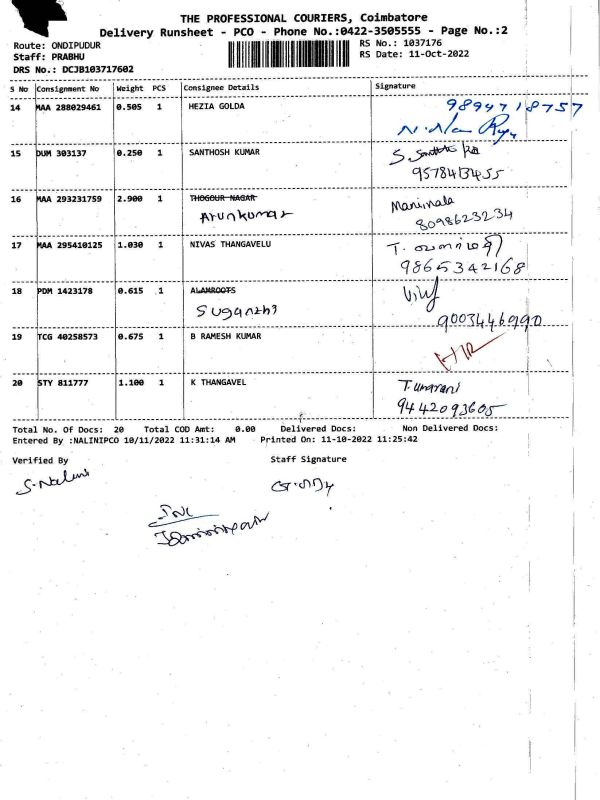 THE PROFESSIONAL COURIERS, Coimbatore
Delivery Runsheet - PCO - Phone No.:0422-3505555 - Page No.:2
Route: ONDIPUDUR
RS No.: 1037176
Staff: PRABHU
RS Date: 11-Oct-2022
DRS No.: DCJB103717602
S No Consignment No Weight PCS Consignee Details Signature
14 MAA 288029461 0.505 1 HEZIA GOLDA 9894718757
15 DUM 303137 0.250 1 SANTHOSH KUMAR S.
9578413455
16 MAA 293231759 2.900 1 THOGOUR NAGAR Manimala
Arunkumar 8098623234
17 MAA 295410125 1.030 1 NIVAS THANGAVELU T. வளர்மதி
9865342168
18 PDM 1423178 0.615 1 ALAMROOTS
Suganthi 9003446990
19 TCG 40258573 0.675 1 B RAMESH KUMAR
20 STY 811777 1.100 1 K THANGAVEL T.umarani
9442093605
Total No. Of Docs: 20 Total COD Amt: 0.00 Delivered Docs: Non Delivered Docs:
Entered By :NALINIPCO 10/11/2022 11:31:14 AM Printed On: 11-10-2022 11:25:42
Verified By Staff Signature
S.Nalini